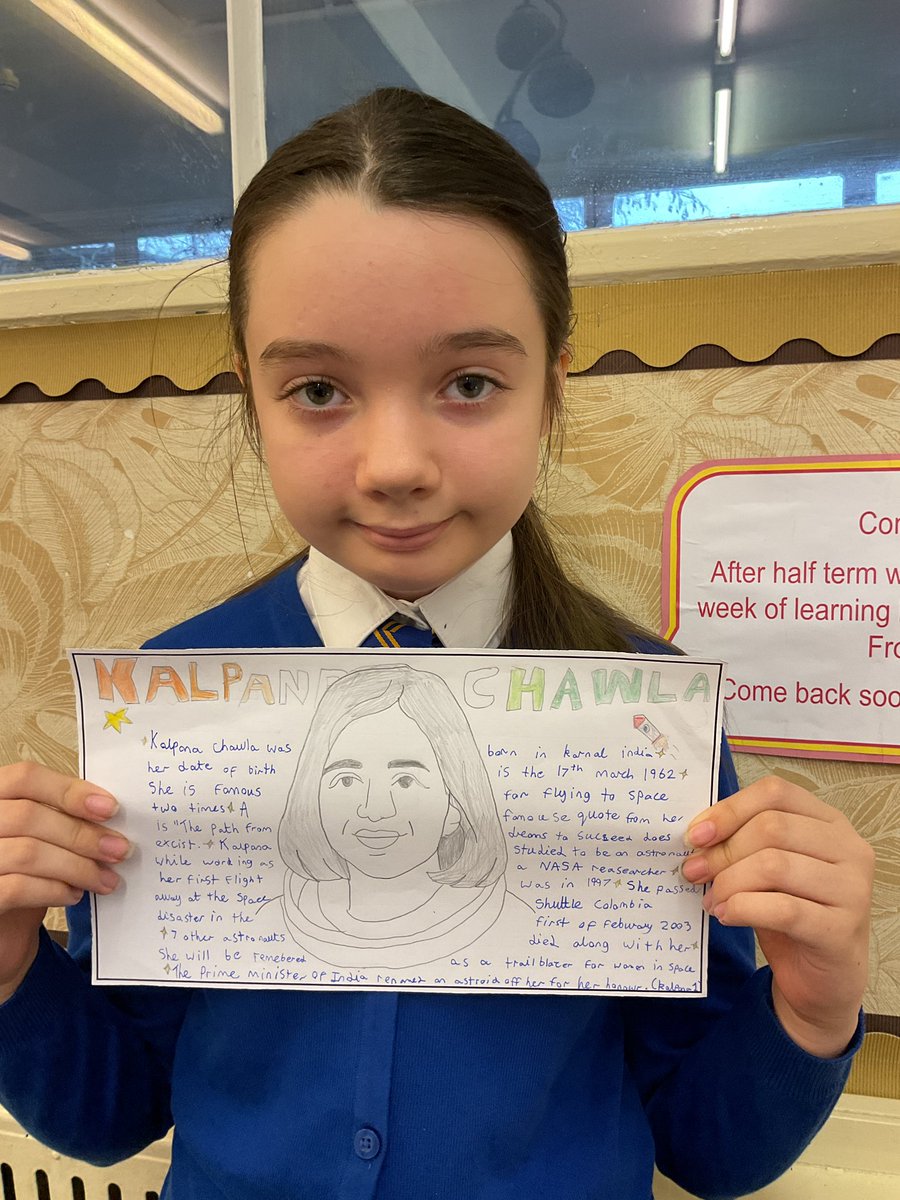 KALPANA CHAWLA
Kalpona chawla was born in Karnal india
her date of birth is the 17th march 1962
She is Famous for flying to space
two times A famouse quote from her
is "The path from dreams to sucseed does
excist. Kalpana studied to be an astronaut
while wording as a NASA reasearcher
her first flight was in 1997 She passed
away at the space Shuttle Colombia
disaster in the first of Febuary 2003
7 other astronauts died along with her
She will be remebered as a trailblazer for women in space
The Prime minister of India renamed an astroid off her for her honour. (kalpana-1)
Con
After half term w
week of learning
Fro
Come back soo